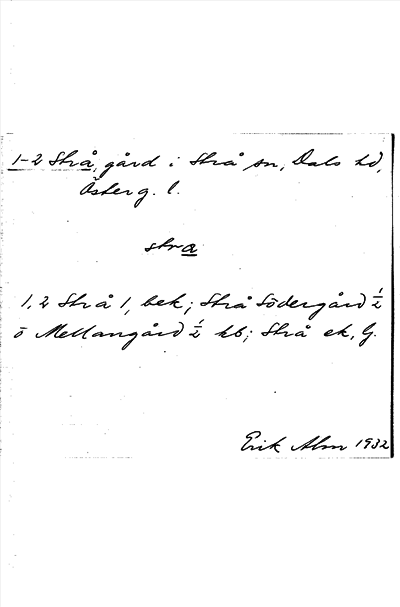 1-2 Strå, gård i Strå sn, Dals hd,
Österg. l.
stra
1, 2 Strå 1, bek; Strå Södergård ½
o Mellangård ½ kb; Strå ek, G.
Erik Alm 1932